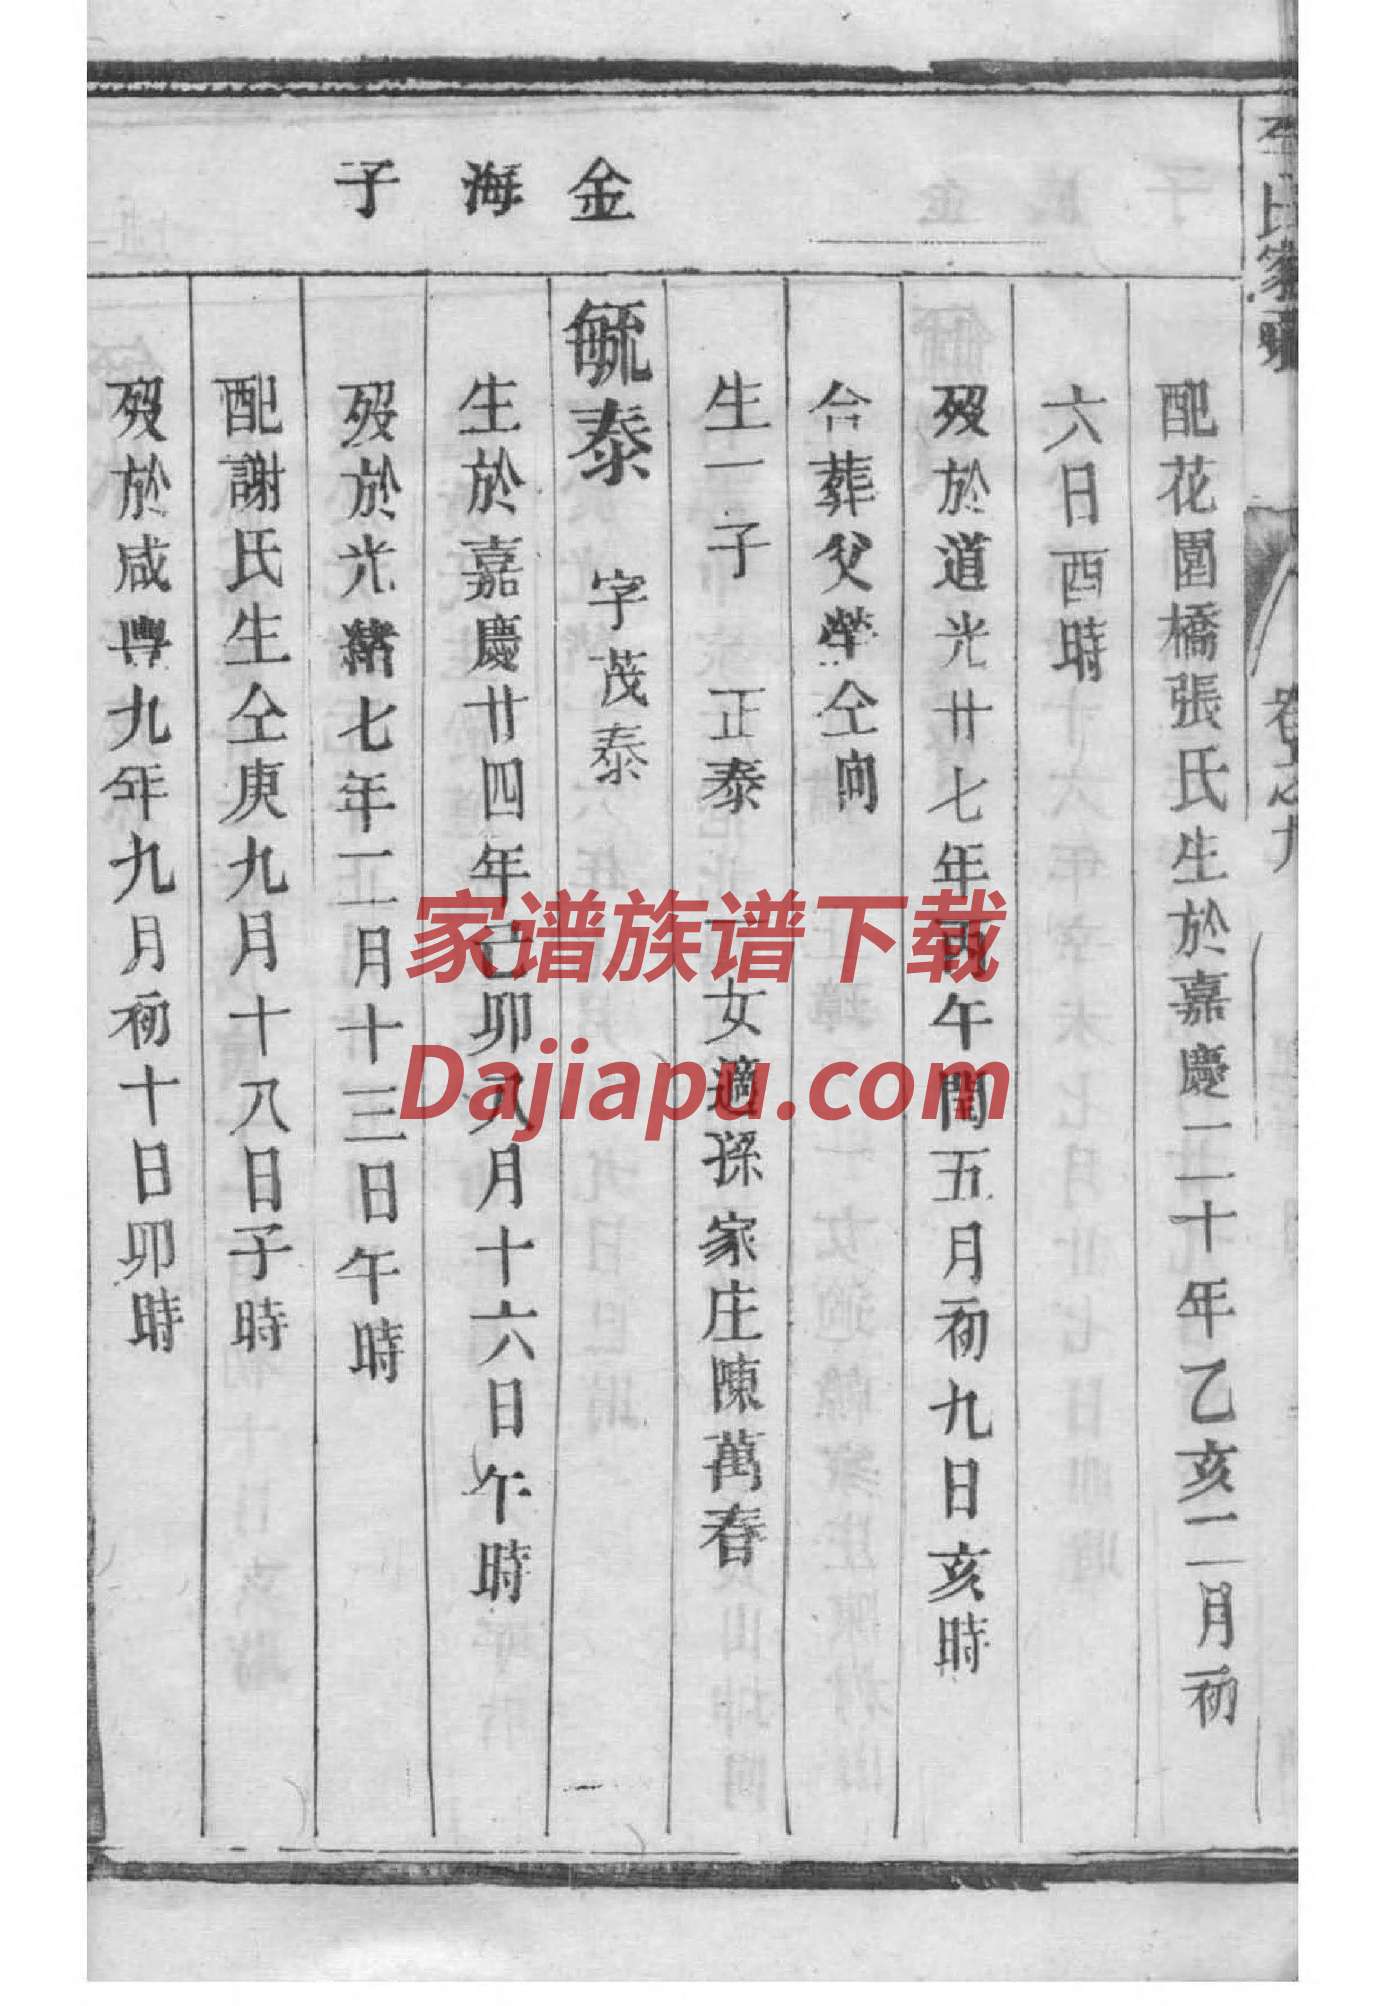 氏家乘
卷之九
配花園橋張氏生於嘉慶二十年乙亥二月初
六日酉時
歿於道光廿七年丙午閏五月初九日亥時
合葬父塋仝向
生一子 正泰 一女適孫家庄陳萬春
金海子
毓泰 字茂泰
生於嘉慶廿四年己卯八月十六日午時
歿於光緒七年正月十三日午時
配謝氏生仝庚九月十八日子時
歿於咸豐九年九月初十日卯時
家谱族谱下载
Dajiapu.com